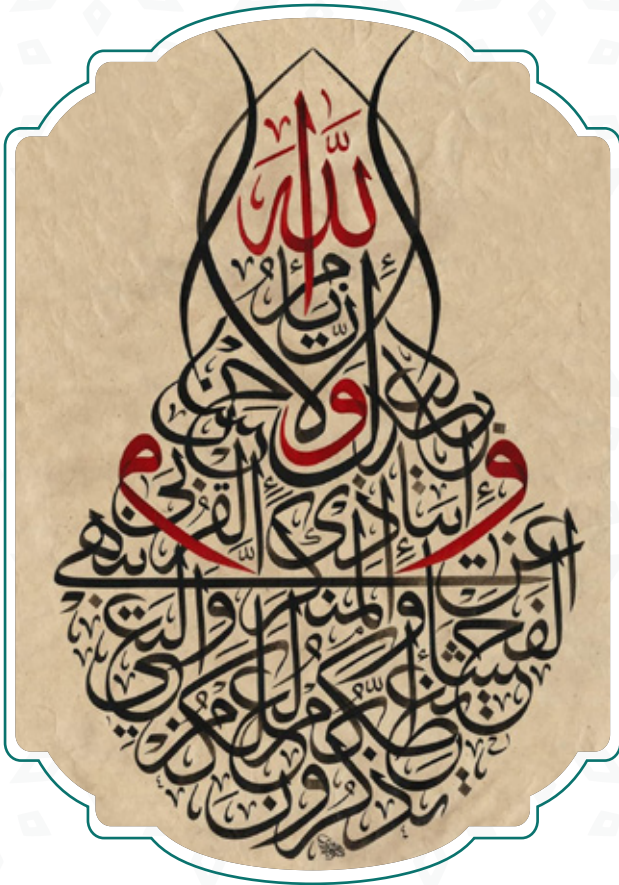 إن الله يأمر
بالعدل والإحسان
وإيتاء ذي القربى
وينهى عن
الفحشاء والمنكر والبغي
يعظكم لعلكم
تذكرون